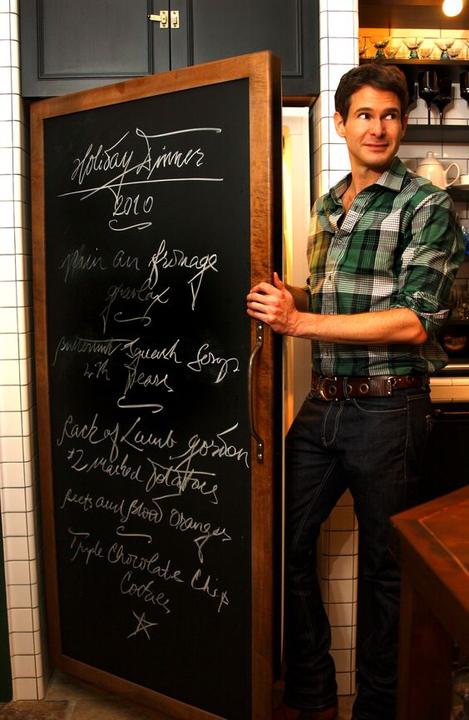 Holiday Dinner
2010
Pain au fromage
gravlax
Butternut Squash Soup
with Pears
Rack of Lamb
#2 Mashed Potatoes
Beets and Blood Oranges
Triple Chocolate Chip
Cookies